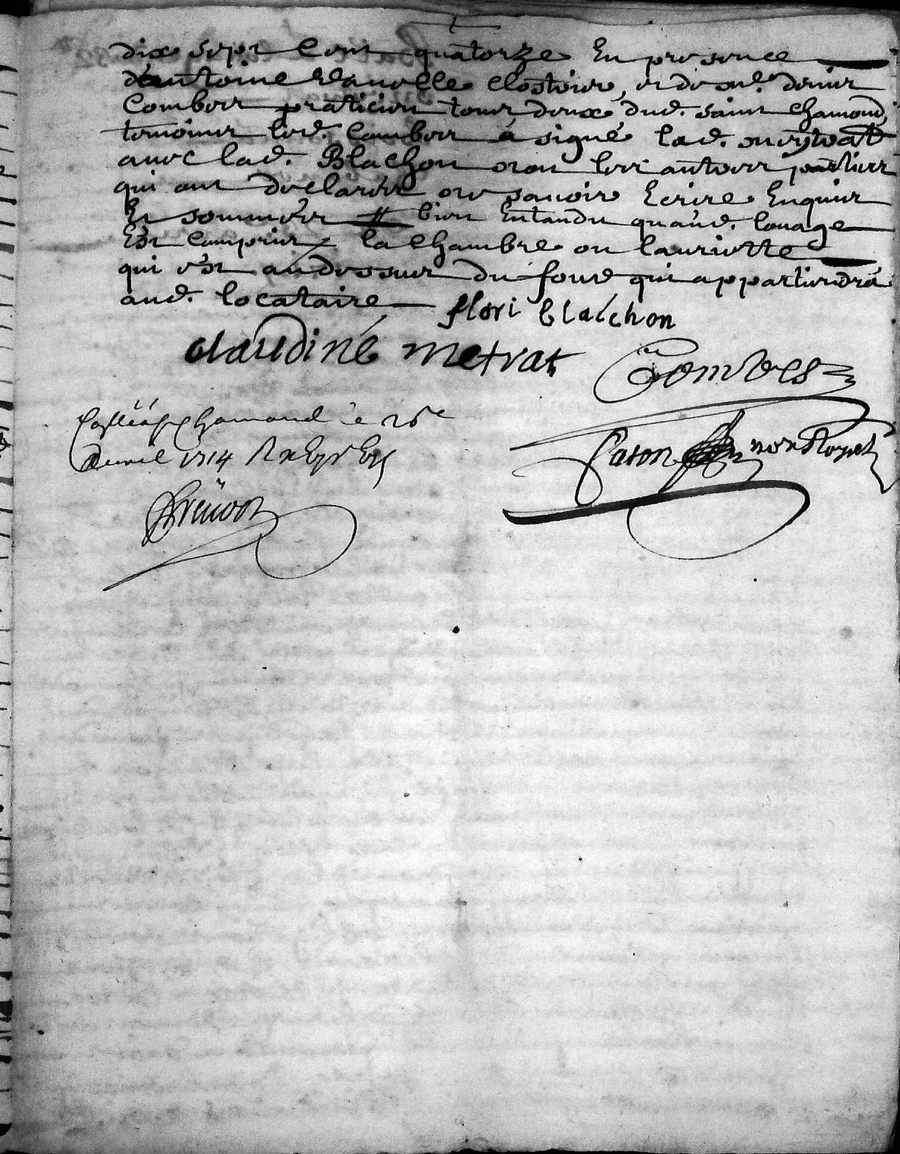 dix sept Cent quatorze En presence
d'antoine Clostoire, et de mr. denis
Combes praticien tous deux dud. saint chamond,
temoins led. Combes a signé lad. metrat
avec lad. Blachon non les autres parties
qui ont declarés ne savoire Ecrire Enquis
Et sommés bien Entandu qu'aud. louage
Est Compris la Chambre ou
qui est au dessus du four qui appartiendra
aud. locataire
flori blachon
claudine metrat
Combes
Con.lé a St chamond le 26e
Avril 1714 R
Paton nore Royal